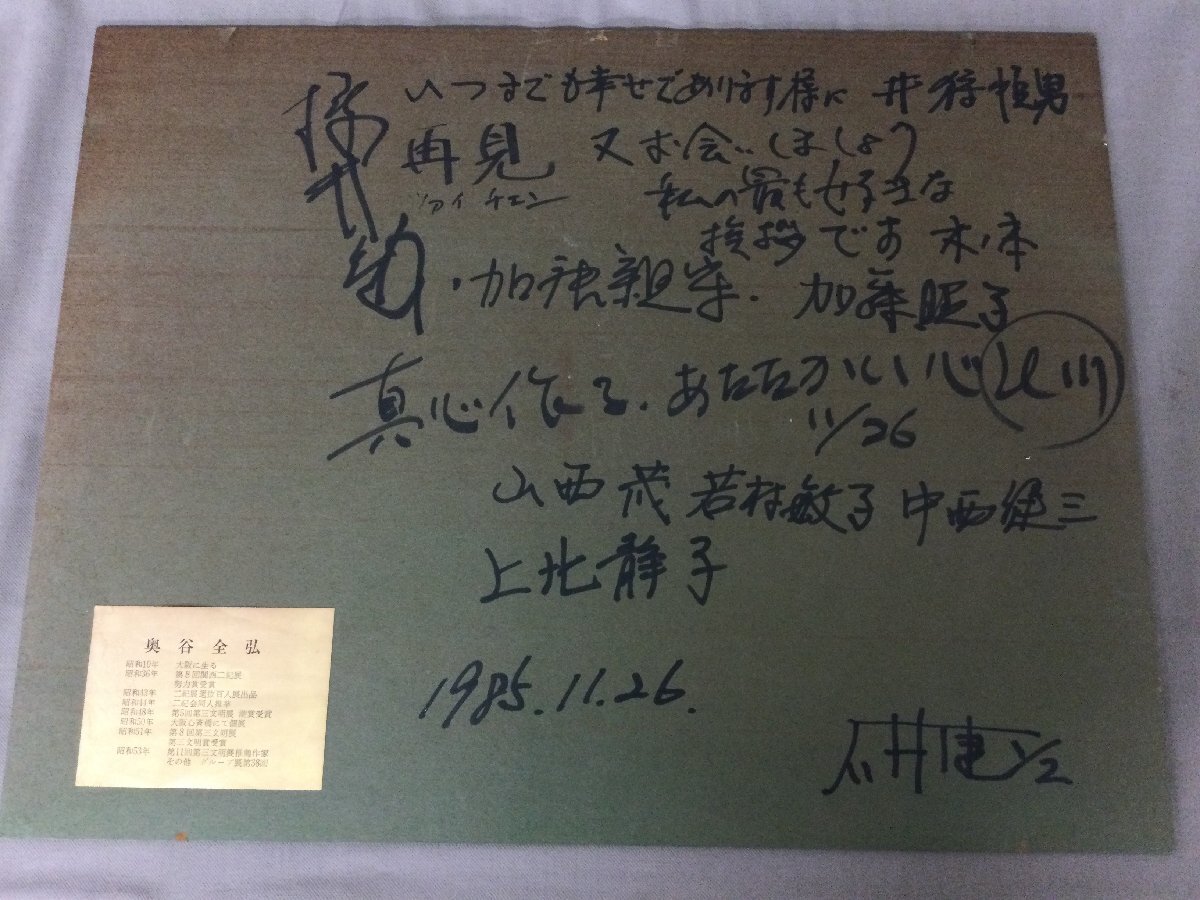 いつまでも幸せであります様に 井 恒男
再見 又お会いしましょう
ツァイ チエン 私の最も好きな
挨拶です 木本
加 親 加藤 子
真心 作る. あたたかい心
11/26
山西 茂 若村敏子 中西健三
上北静子
1985.11.26.
石井健
奥谷全弘
昭和10年 大阪に生る
昭和36年 第8回関西二紀展
努力賞受賞
昭和43年 二紀展選抜百人展出品
昭和44年 二紀会同人推挙
昭和48年 第5回第三文明展 潮賞受賞
昭和50年 大阪心斎橋にて個展
昭和51年 第8回第三文明展
第三文明賞受賞
昭和53年 第11回第三文明展推薦作家
その他 グループ展第38回